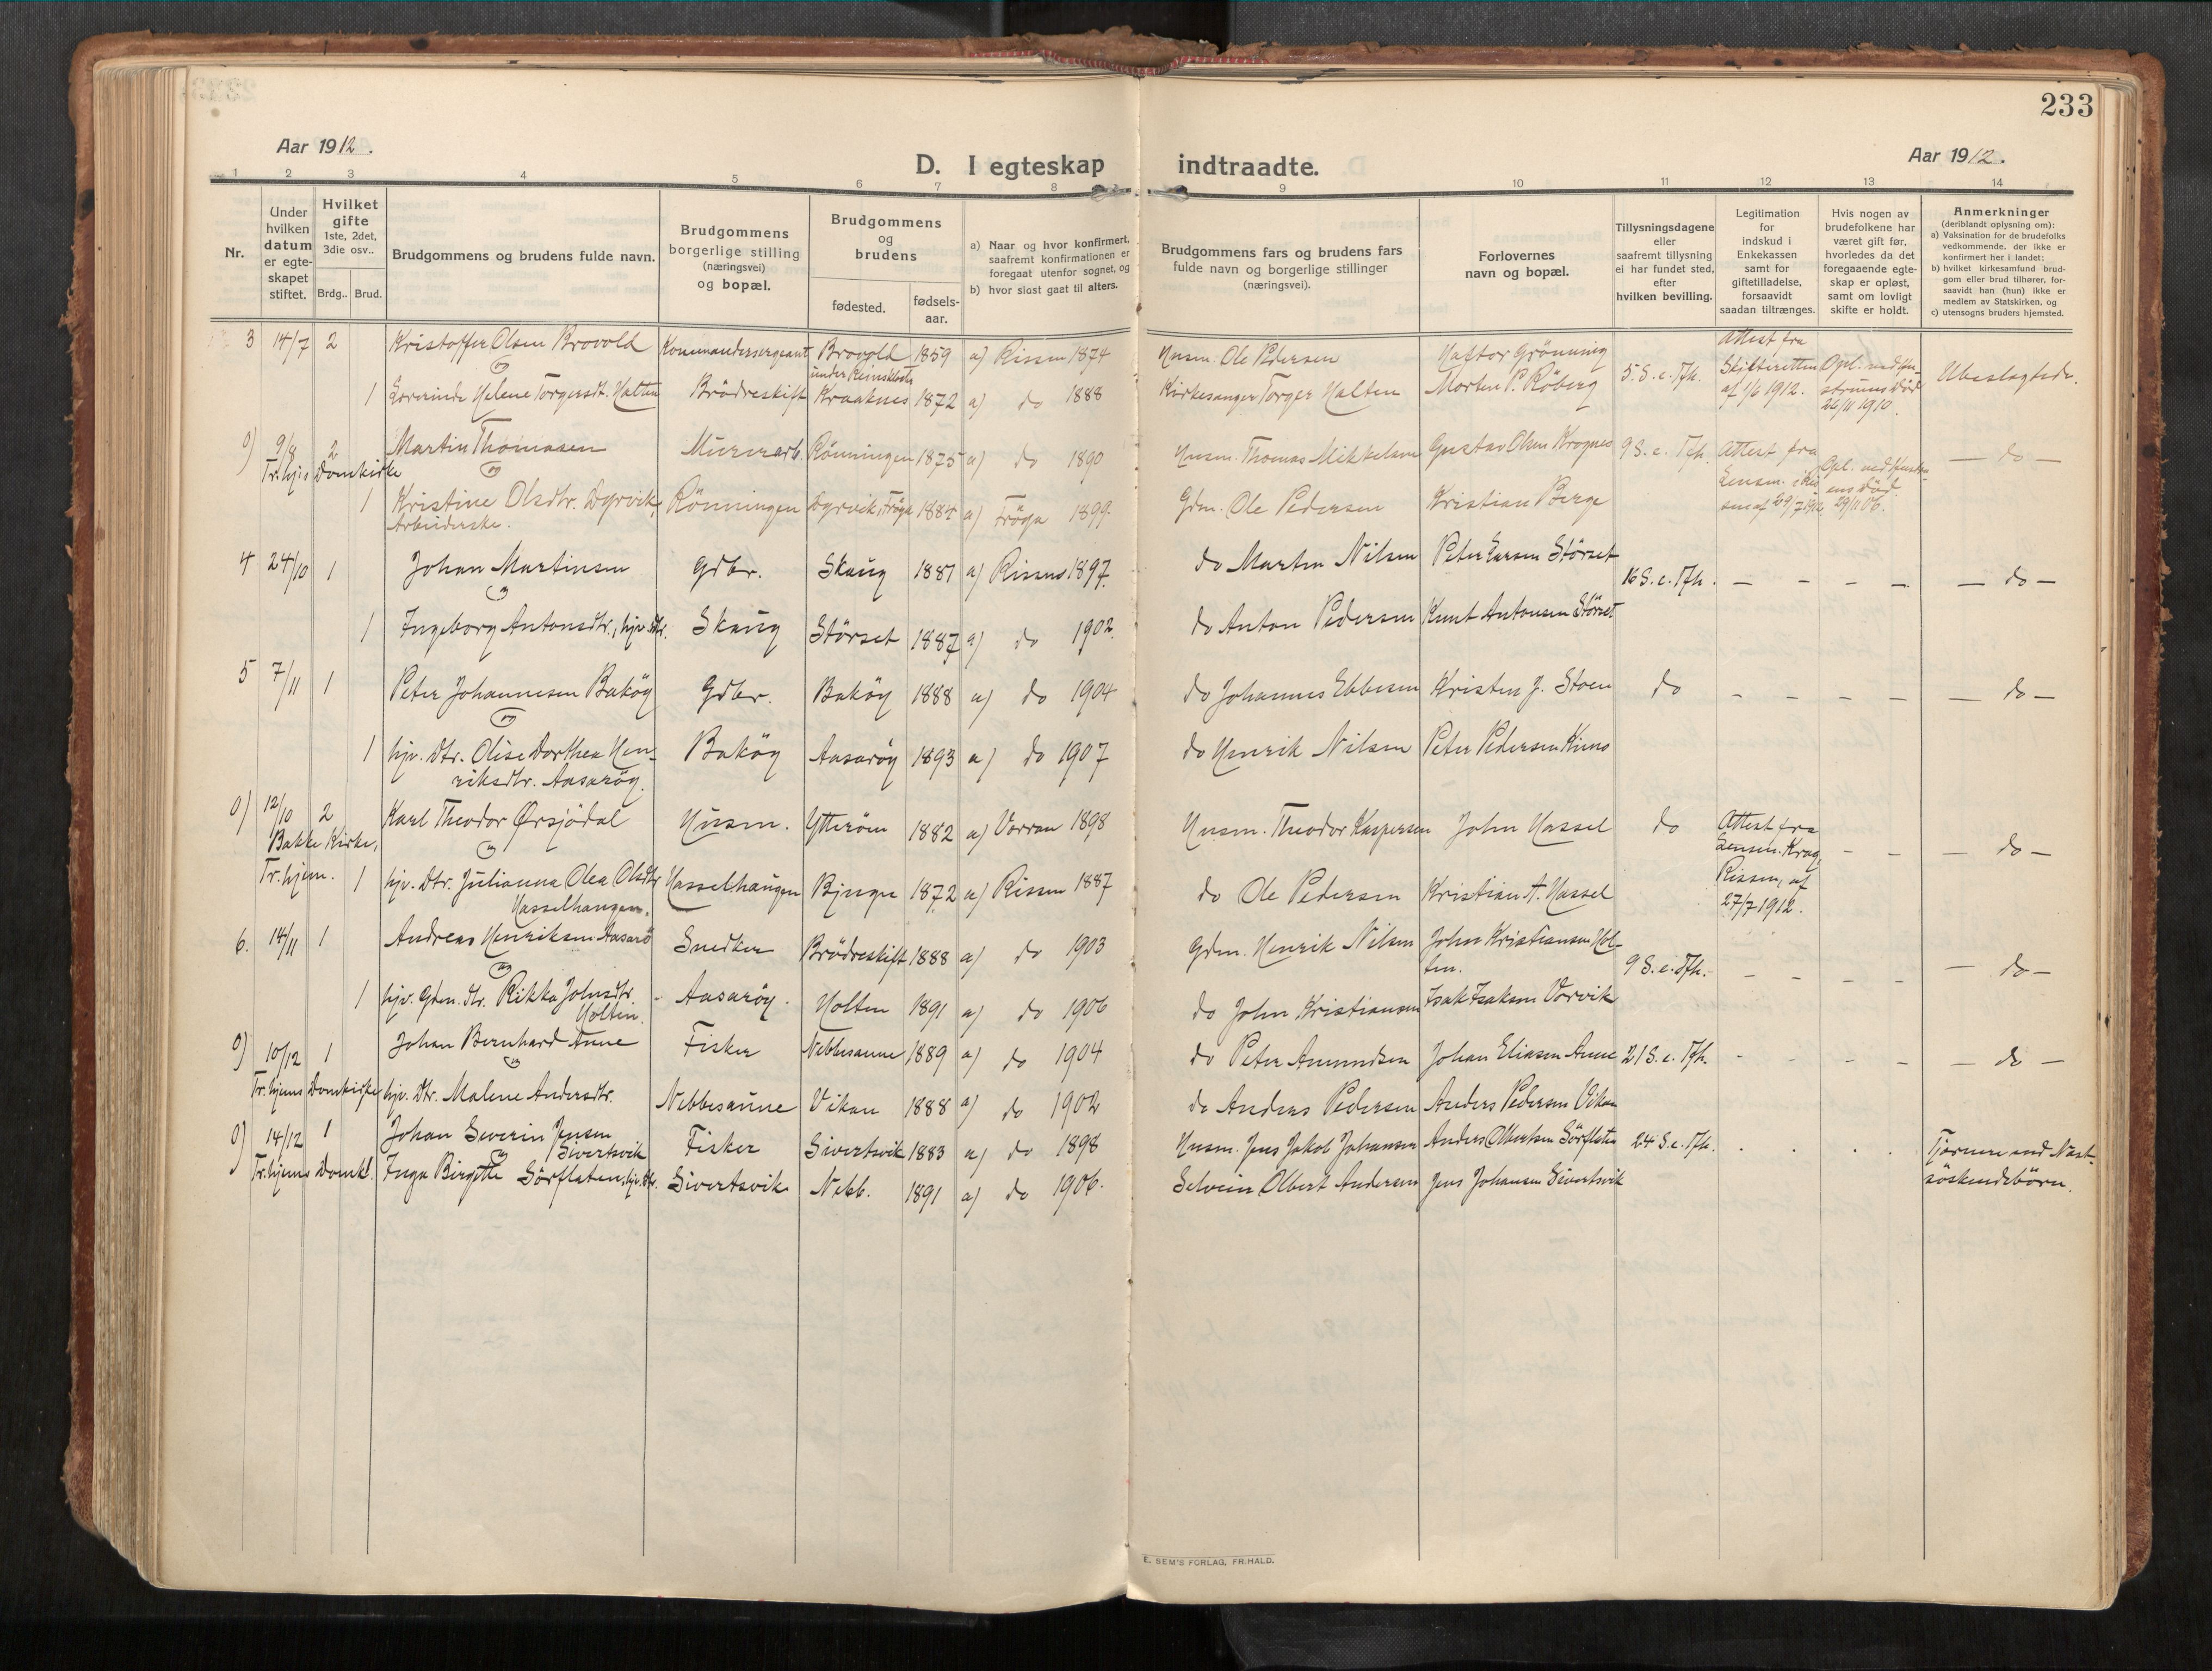 233
Aar 1912.
D. I egteskap indtraadte.
Aar 1912.
1 2 3 4 5 6 7 8 9 10 11 12 13 14
Nr.
Under hvilken datum er egte- skapet stiftet.
Hvilket gifte 1ste, 2det, 3die osv..
Brdg.. Brud.
Brudgommens og brudens fulde navn.
Brudgommens borgerlige stilling (næringsvei) og bopæl.
Brudgommens og brudens
fødested. fødsels- aar.
a) Naar og hvor konfirmert, saafremt konfirmationen er foregaat utenfor sognet, og
b) hvor sidst gaat til alters.
Brudgommens fars og brudens fars fulde navn og borgerlige stillinger (næringsvei).
Forlovernes navn og bopæl.
Tillysningsdagene eller saafremt tillysning ei har fundet sted, efter hvilken bevilling.
Legitimation for indskud i Enkekassen samt for giftetilladelse, forsaavidt saadan tiltrænges.
Hvis nogen av brudefolkene har været gift før, hvorledes da det foregaaende egte- skap er opløst, samt om lovligt skifte er holdt.
Anmerkninger (deriblandt oplysning om):
a) Vaksination for de brudefolks vedkommende, der ikke er konfirmert her i landet;
b) hvilket kirkesamfund brud- gom eller brud tilhører, for- saavidt han (hun) ikke er medlem av Statskirken, og
c) utensogns bruders hjemsted.
3 14/7 2 Kristoffer Olsen Brovold Kommandersergeant Brovold under Reinskloster 1859 a) Rissen 1874 Husm. Ole Pedersen Haftor Grönning 5. S. e. Tfh. Attest fra Skifteretten af 1/6 1912. Opl. ved Hu- struens død 26/11 1910. Ubeslægtede.
og
1 Helene Torgersdt. Halten Brödreskift Kraaknes 1872 a) do 1888 Kirkesanger Torger Halten Morten P. Röberg
0) 9/8 2 Martin Thomasen Murerarb. Rönningen 1875 a) do 1890 Husm. Thomas Mikkelsen Gustav Olsen Krognes 9 S. e. Tfh. Attest fra Lensm. i Ris- sen af 29/7 1912. Opl. ved Hustru- ens død 29/11 06. — do —
Tr.hj. i Domkirke
og
1 Kristine Olsdtr. Dyrvik, Rönningen Dyrvik, Fröya 1884 a) Fröya 1899. Gdm. Ole Pedersen Kristian Berge
Arbeiderske.
4 24/10 1 Johan Martinsen Gdbr. Skaug 1881 a) Rissen 1897. do Martin Nilsen Peter Larsen Störset 16 S. e. Tfh. — — — — — do —
og
1 Ingeborg Antonsdtr., hjv. dtr. Skaug Störset 1887 a) do 1902. do Anton Pedersen Knut Antonsen Störset
5 7/11 1 Peter Johannesen Baköy Gdbr. Baköy 1888 a) do 1904 do Johannes Ebbesen Kristen J. Stoen do — — — — — do —
og
1 hjv. Dtr. Olise Dorthea Hen- Baköy Aasaröy 1893 a) do 1907 do Henrik Nilsen Peter Pedersen
riksdtr. Aasaröy.
0) 12/10 2 Karl Theodor Ørsjödal Husm. Ytteröen 1882 a) Vorran 1898 Husm. Theodor Kaspersen John Hassel do Attest fra Lensm. Krag, Rissen, af 27/7 1912. — — — do —
Bakke Kirke,
og
Tr.hjem. 1 hjv. Dtr. Julianna Olea Olsdtr Hasselhaugen Bjugn 1872 a) Rissen 1887 do Ole Pedersen Kristian A. Hassel
Hasselhaugen.
6. 14/11 1 Andreas Henriksen Aasarö Snedker Brödreskift 1888 a) do 1903 Gdm. Henrik Nilsen John Kristiansen Hol- ten. 9 S. e. Tfh. — — — — — do —
og
1 hjv. Gdm. dtr. Rikka Johnsdtr. Holten. Aasaröy. Holten 1891 a) do 1906 do John Kristiansen Isak Isaksen Vorvik
0) 10/12 1 Johan Bernhard Aune Fisker Nebbesaune 1889 a) do 1904 do Peter Amundsen Johan Eliasen Aune 21 S. e. Tfh. — — — — — do —
og
Tr.hjems Domkirke hjv. Dtr. Malene Andersdtr. Nebbesaune Vikan 1888 a) do 1902 do Anders Pedersen Anders Pedersen Vikan
0) 14/12 1 Johan Severin Jensen Sivertsvik Fisker Sivertsvik 1883 a) do 1898 Husm. Jens Jakob Johansen Anders Olbertsen Sörflaten 24 S. e. Tfh. . . . . Fjernere end Næst- söskendebörn.
og
Tr.hjems Domk! Inga Birgitte Sörflaten, hjv. dtr. Sivertsvik Nebb. 1891 a) do 1906. Selveier Olbert Andersen Jens Johansen Sivertsvik
E. SEM'S FORLAG, FR.HALD.